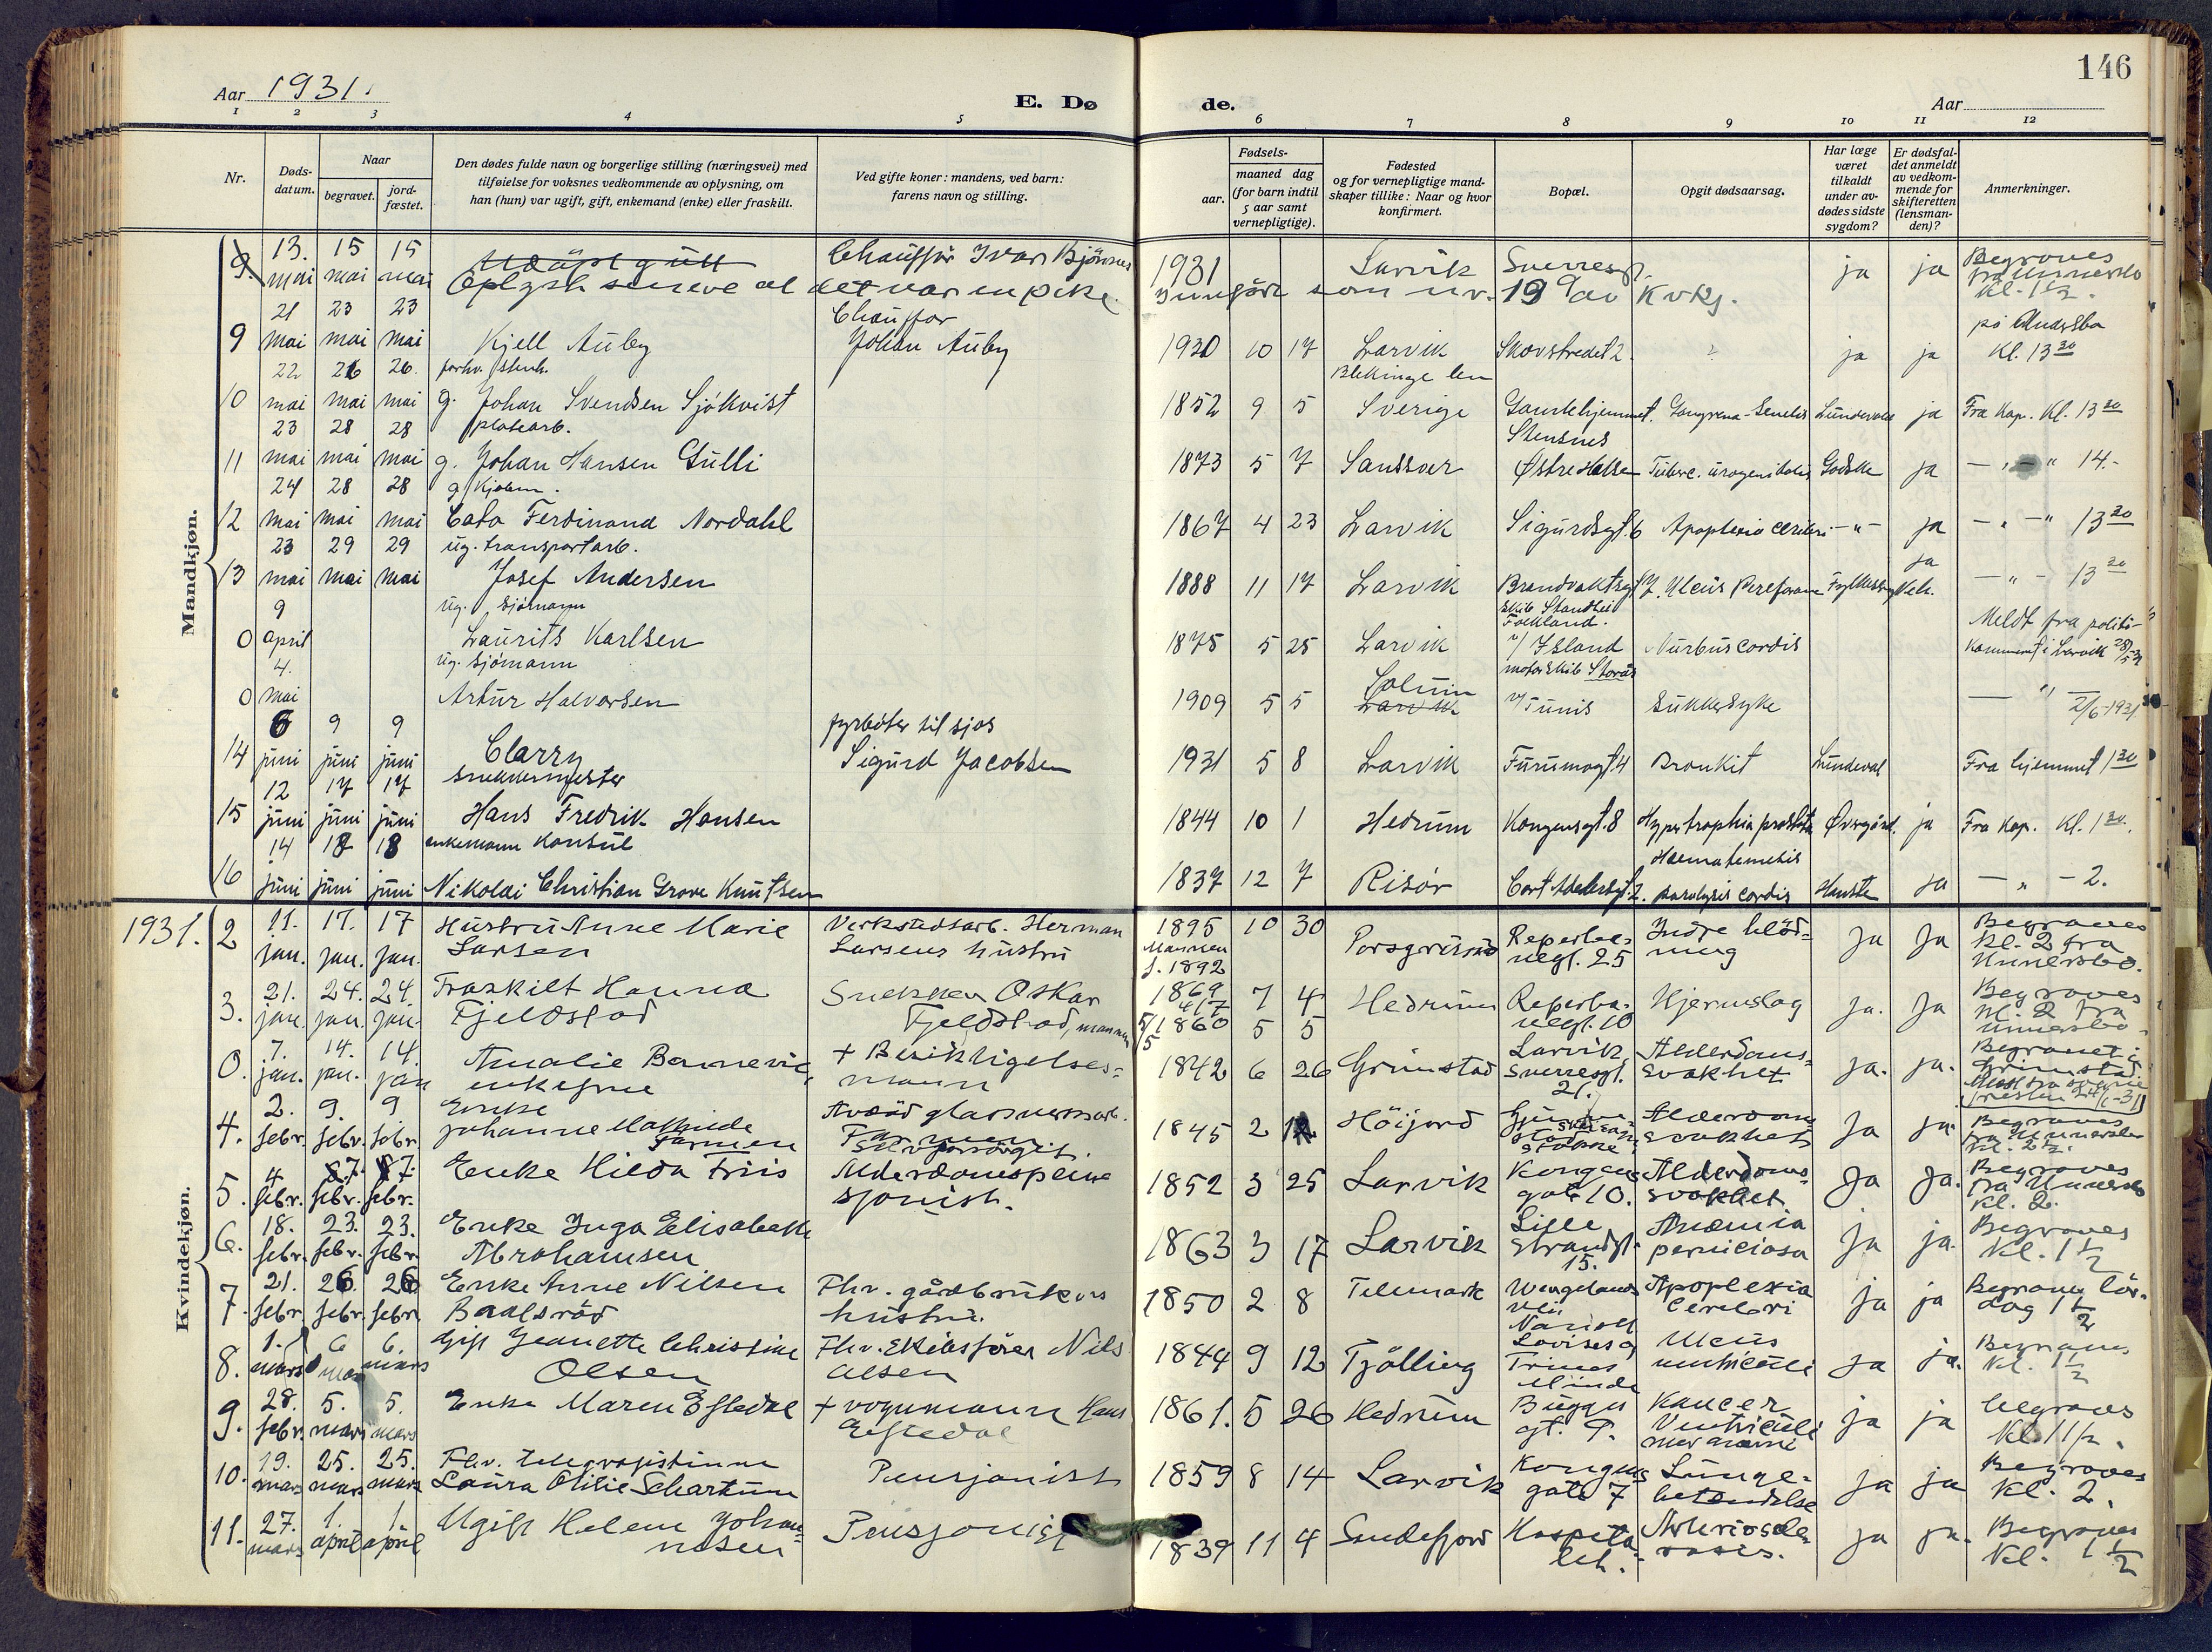 146
Aar 1931.
E. Dø de.
Aar
1 2 3 4 5 6 7 8 9 10 11 12
Nr.
Døds-
datum.
Naar
begravet.
jord-
fæstet.
Den dødes fulde navn og borgerlige stilling (næringsvei) med
tilføielse for voksnes vedkommende av oplysning, om
han (hun) var ugift, gift, enkemand (enke) eller fraskilt.
Ved gifte koner: mandens, ved barn:
farens navn og stilling.
Fødsels-
aar.
maaned dag
(for barn indtil
5 aar samt
vernepligtige).
Fødested
og for vernepligtige mand-
skaper tillike: Naar og hvor
konfirmert.
Bopæl.
Opgit dødsaarsag.
Har læge
været
tilkaldt
under av-
dødes sidste
sygdom?
Er dødsfal-
det anmeldt
av vedkom-
mende for
skifteretten
(lensman-
den)?
Anmerkninger.
Mandkjøn.
9. 13. mai 15 mai 15 mai Udøpt gutt Chauffør Ivar Bjørnnes 1931 Larvik ja ja Begraves kl. 1½.
Oplyst senere at det var en pike. Inngført som nr. 19 av Kvkj.
9 21 mai 23 mai 23 mai Kjell Auby Chauffør Johan Auby 1930 10 17 Larvik Skovstredet 2. ? ja ja Kl. 13 30
10 22 mai 26 mai 26. mai g. Johan Svendsen Sjökvist 1852 9 5 Blekinge len Sverige Gamlehjemmet. Gangrena-Senilis Lundevall ja Fra Kap. Kl. 13 30
11 23 mai 28 mai 28 mai platearb. g. Johan Hansen Gulli 1873 5 7 Sandsvær Stensnes Østre Halsen Tuberc. urogenitales Godske ja — " — " 14.-
12 24 mai 28 mai 28 mai g. Cato Ferdinand Nordahl 1867 4 23 Larvik Sigurdsgt. 6 Apoplexia cerebri — " — ja — " — " 13 30
13 23 mai 29 mai 29 mai ug. transportarb. Josef Andersen 1888 11 17 Larvik Brandvaktsgt 7. Ulcus Fylkessykeh. ja — " — 13 30
0 9 april ug. sjömann Laurits Karlsen 1875 5 25 Larvik v/ Island cordis Meldt fra politi-
kammeret i Larvik 28/5-31
0 4. mai ug. sjömann Artur Halvorsen 1909 5 5 Solum Larvik motorskib v/ Tunis Sukkersyke — " — 2/6-1931
14 6 juni 9 juni 9 juni Clarry fyrböter til sjös Sigurd Jacobsen 1931 5 8 Larvik Furumogt. 4 Bronkit Lundeval Fra hjemmet 1 30
15 12 juni 17 juni 17 juni snekkermester Hans Fredrik Hansen 1844 10 1 Hedrum Kongensgt. 8 Hypertrophia prostata Øvergård. ja Fra Kap. Kl. 1 30.
16 14 juni 18 juni 18 juni enkemann Konsul Nikolai Christian Grove Knutsen 1837 12 7 Risör Cort Adelersgt. 2. Haematemesis paralysis cordis ja — " — 2.
Kvindekjøn.
1931. 2 11. jan. 17. jan. 17 jan. Hustru Anne Marie Larsen Verkstedsarb. Herman Larsens hustru 1895 10 30 Mannen f. 1892 Porsgrund Reperba-
negt. 25 Indre blöd-
ning ja ja Begraves kl. 2 fra
3. 21. jan. 24. jan. 24. jan. Fraskilt Hanna Fjeldstad Snekker Oskar Fjeldstad, mannen 5/5 1860 1869 7 4 Hedrum Reperba-
negt. 10 Hjerneslag ja. ja Begraves kl. 2 fra
0. 7. jan. 14. jan. 14. jan Amalie enkefrue + Besiktigelses-
mann 1842 6 26 Grimstad Larvik, Sverresgt. 21. Alderdoms-
svakhet ja. ja. Begravet i Grimstad.
4. 2. febr. 9. febr. 9 febr Enke Johanne Mathilde Farmen Avdöd glassverksarb. Farmen. Selvforsörget. 1845 2 12 Höijord Alderdoms svakhet ja ja. Begraves kl. 2½.
5. 4 febr. 7. febr. 7. febr. Enke Hilda Friis Alderdomspensjonist. 1852 3 25 Larvik Kongens gate 10. Alderdoms-
svakhet ja ja. Begraves kl. 2.
6. 18. febr. 23. febr. 23. febr. Enke Inga Elisabeth Abrahamsen 1863 3 17 Larvik Lille Strandgt. 15. Anæmia perniciosa ja ja. Begraves kl. 1½
7. 21. febr 26 febr. 26 febr. Enke Anne Nilsen Baalsröd Fhv. gårdbrukers hustru. 1850 2 8 Telemark Apoplexia cerebri ja ja Begraves lör-
dag 1½
8. 1. mars 6 mars 6. mars Gift Jeanette Christine Olsen Fhv. Skibsförer Nils Olsen 1844 9 12 Tjölling Ulcus ventriculi ja ja. Begraves kl. 1½
9. 28. febr. 5. mars 5. mars Enke Maren Eftedal + vognmann Hans Eftedal 1861. 5 26 Hedrum Bugges gt. 9. Kancer Ventriculi ja ja begraves kl. 1½.
10. 19. mars 25. mars 25. mars Fhv. telegrafistinne Laura Otilie Schartum Pensjonist 1859 8 14 Larvik Kongens gate 7 Lunge-
betendelse ja ja Begraves kl. 2.
11. 27. mars 1. april 1. april Ugift Helene Johan-
nesen Pensjonist 1839 11 4 Sandefjord Hospita-
let. Arterioscle-
rosis. ja ja. Begraves kl. 1½